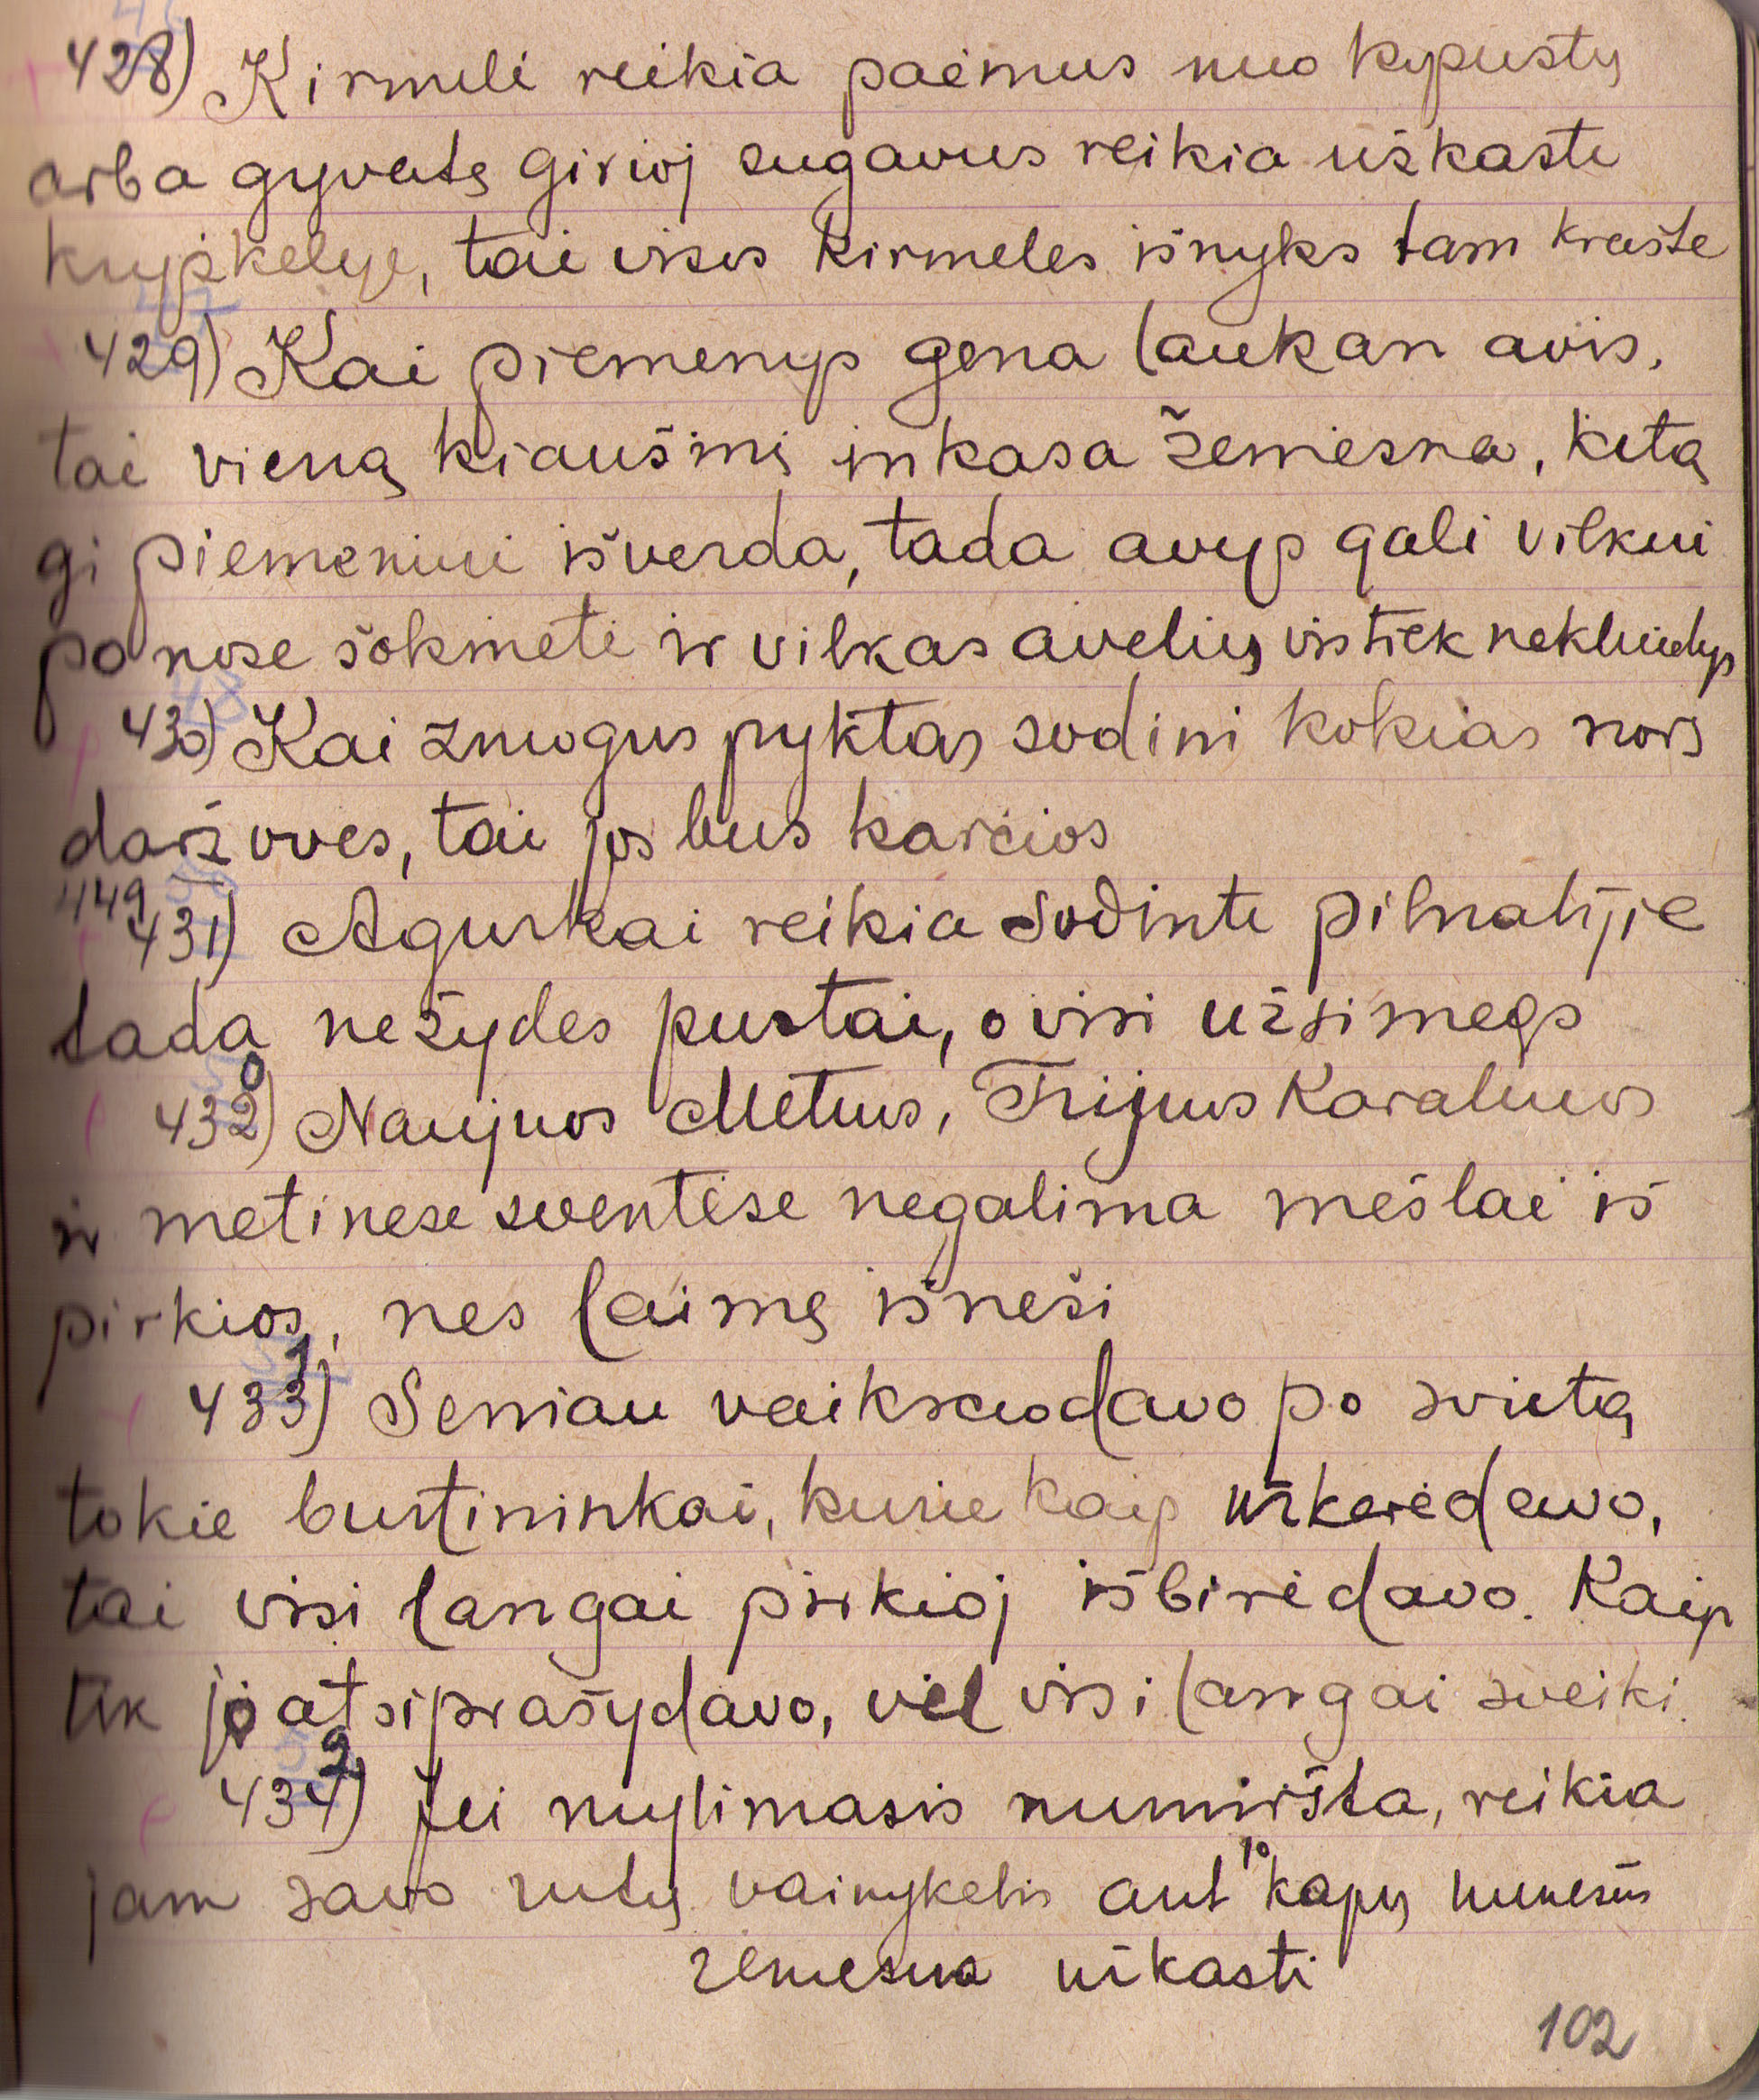 428) Kirmeli reikia paėmus nuo kopustų
arba gyvatę girioj sugavus reikia užkasti
kryžkelyje, tai visos kirmeles išnyks tam krašte
429) Kai piemenys gena laukan avis,
tai vieną kiaušinį inkasa žemiesna, kitą
gi piemeniui išverda, tada avys gali vilkui
po nose šokinėti ir vilkas avelių vistiek nekliudys
430) Kai zmogus pyktas sodini kokias nors
daržoves, tai jos bus karčios
449
431) Agurkai reikia sodinti pilnatijie
tada nežydes pustai, o visi užsimegs
432) 0 Naujuos Metuos, Trijuos Karaliuos
ir metinese sventėse negalima mėšlai iš
pirkios, nes laimę išneši
433) 1 Seniau vaiksciodavo po svietą
tokie burtininkai, kurie kaip užkerėdavo,
tai visi langai pirkioj išbirėdavo. Kaip
tik jo atsiprašydavo, vėl visi langai sveiki.
434) 2 Jei mylimasis numiršta, reikia
jam savo rutų vainykelis ant jo kapų nunešus
zemesna užkasti
102